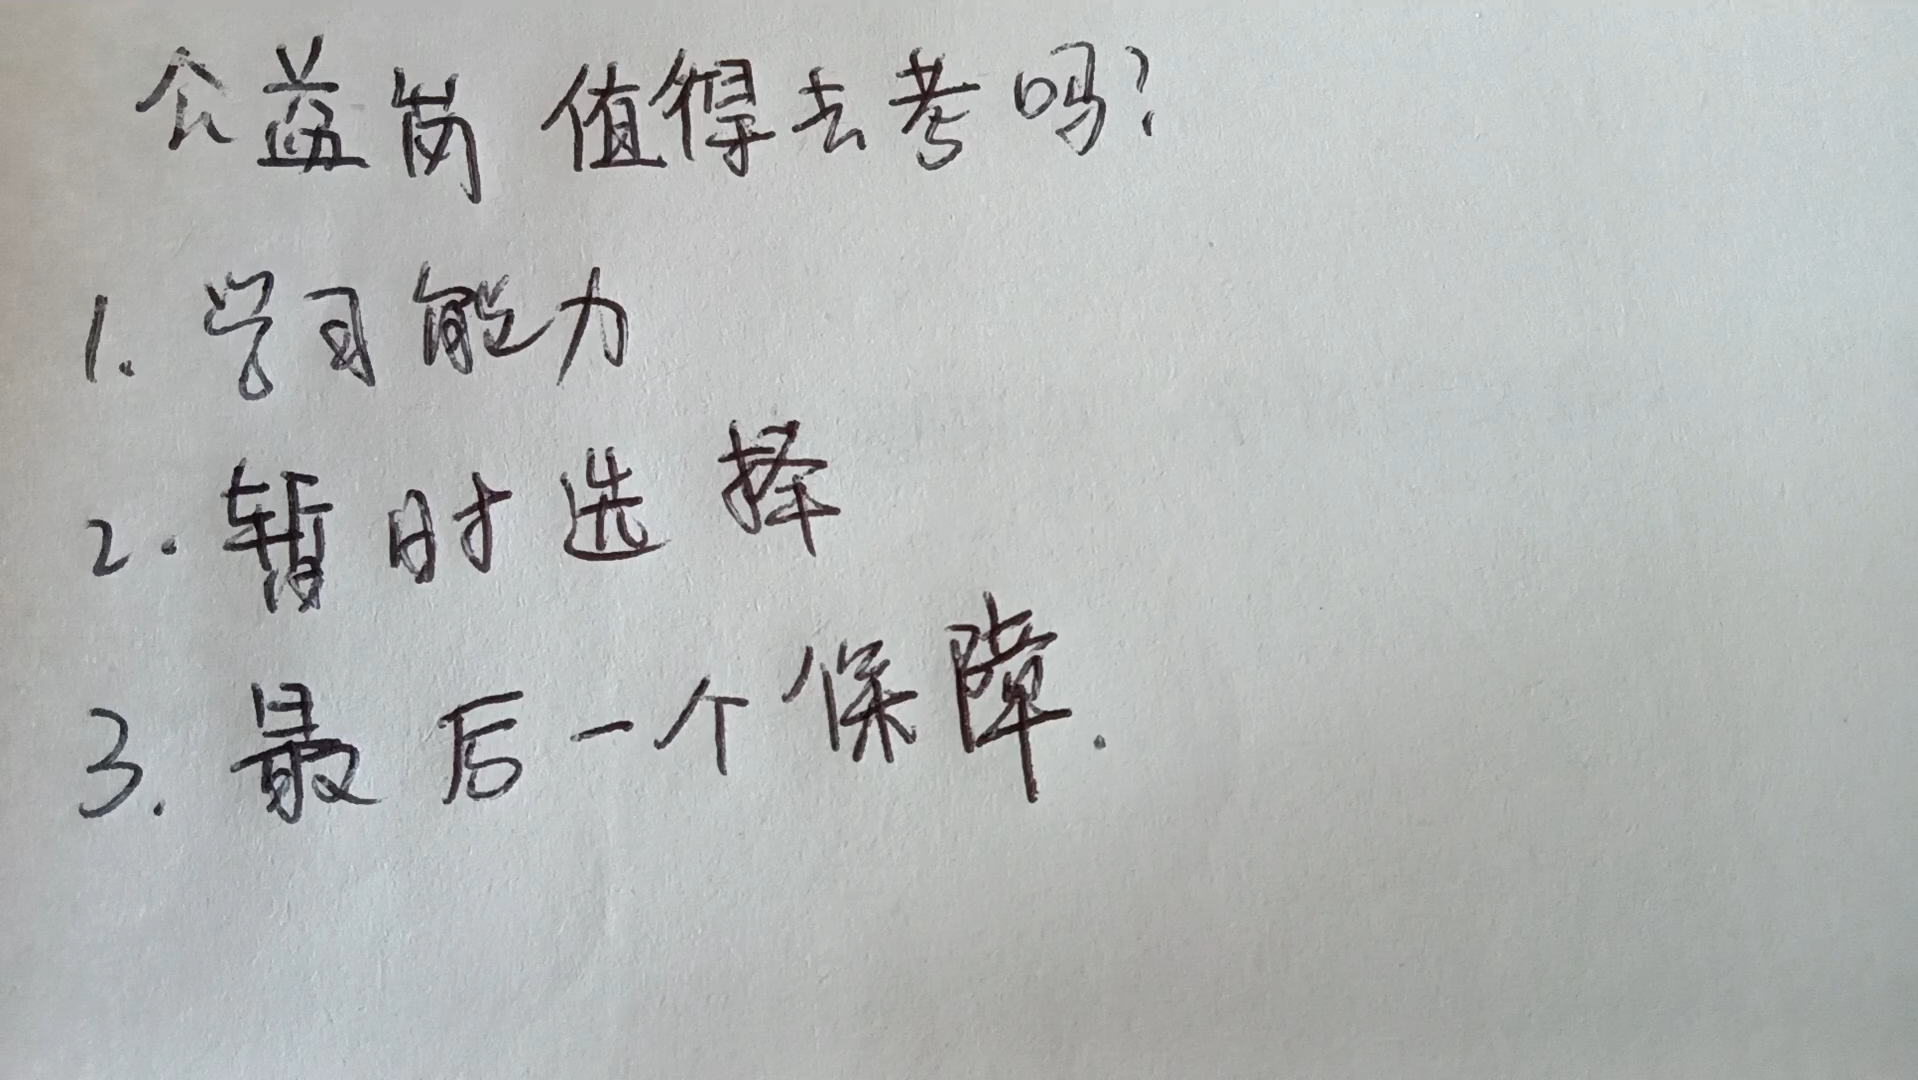 公益岗 值得去考吗?
1. 学习能力
2. 暂时选择
3. 最后一个保障.